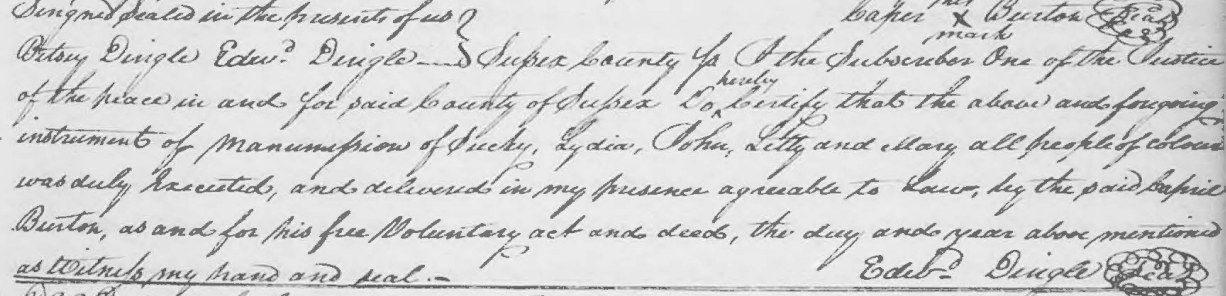 Singned Sealed in the presents of us } Caper his X mark Burton Seal
Betsey Dingle Edwd. Dingle } Sussex County Ss I the Subscriber One of the Justice
of the peace in and for said County of Sussex Do hereby Certify that the above and forgoing
instrument of Manumission of Sucky, Lydia, John, Litty and Mary all people of colour
was duly Executed, and delivered in my presence agreable to Law, by the said
Burton, as and for his free Voluntary act and deed, the day and year above mentioned
as Witness my hand and seal.-
Edwd. Dingle Seal